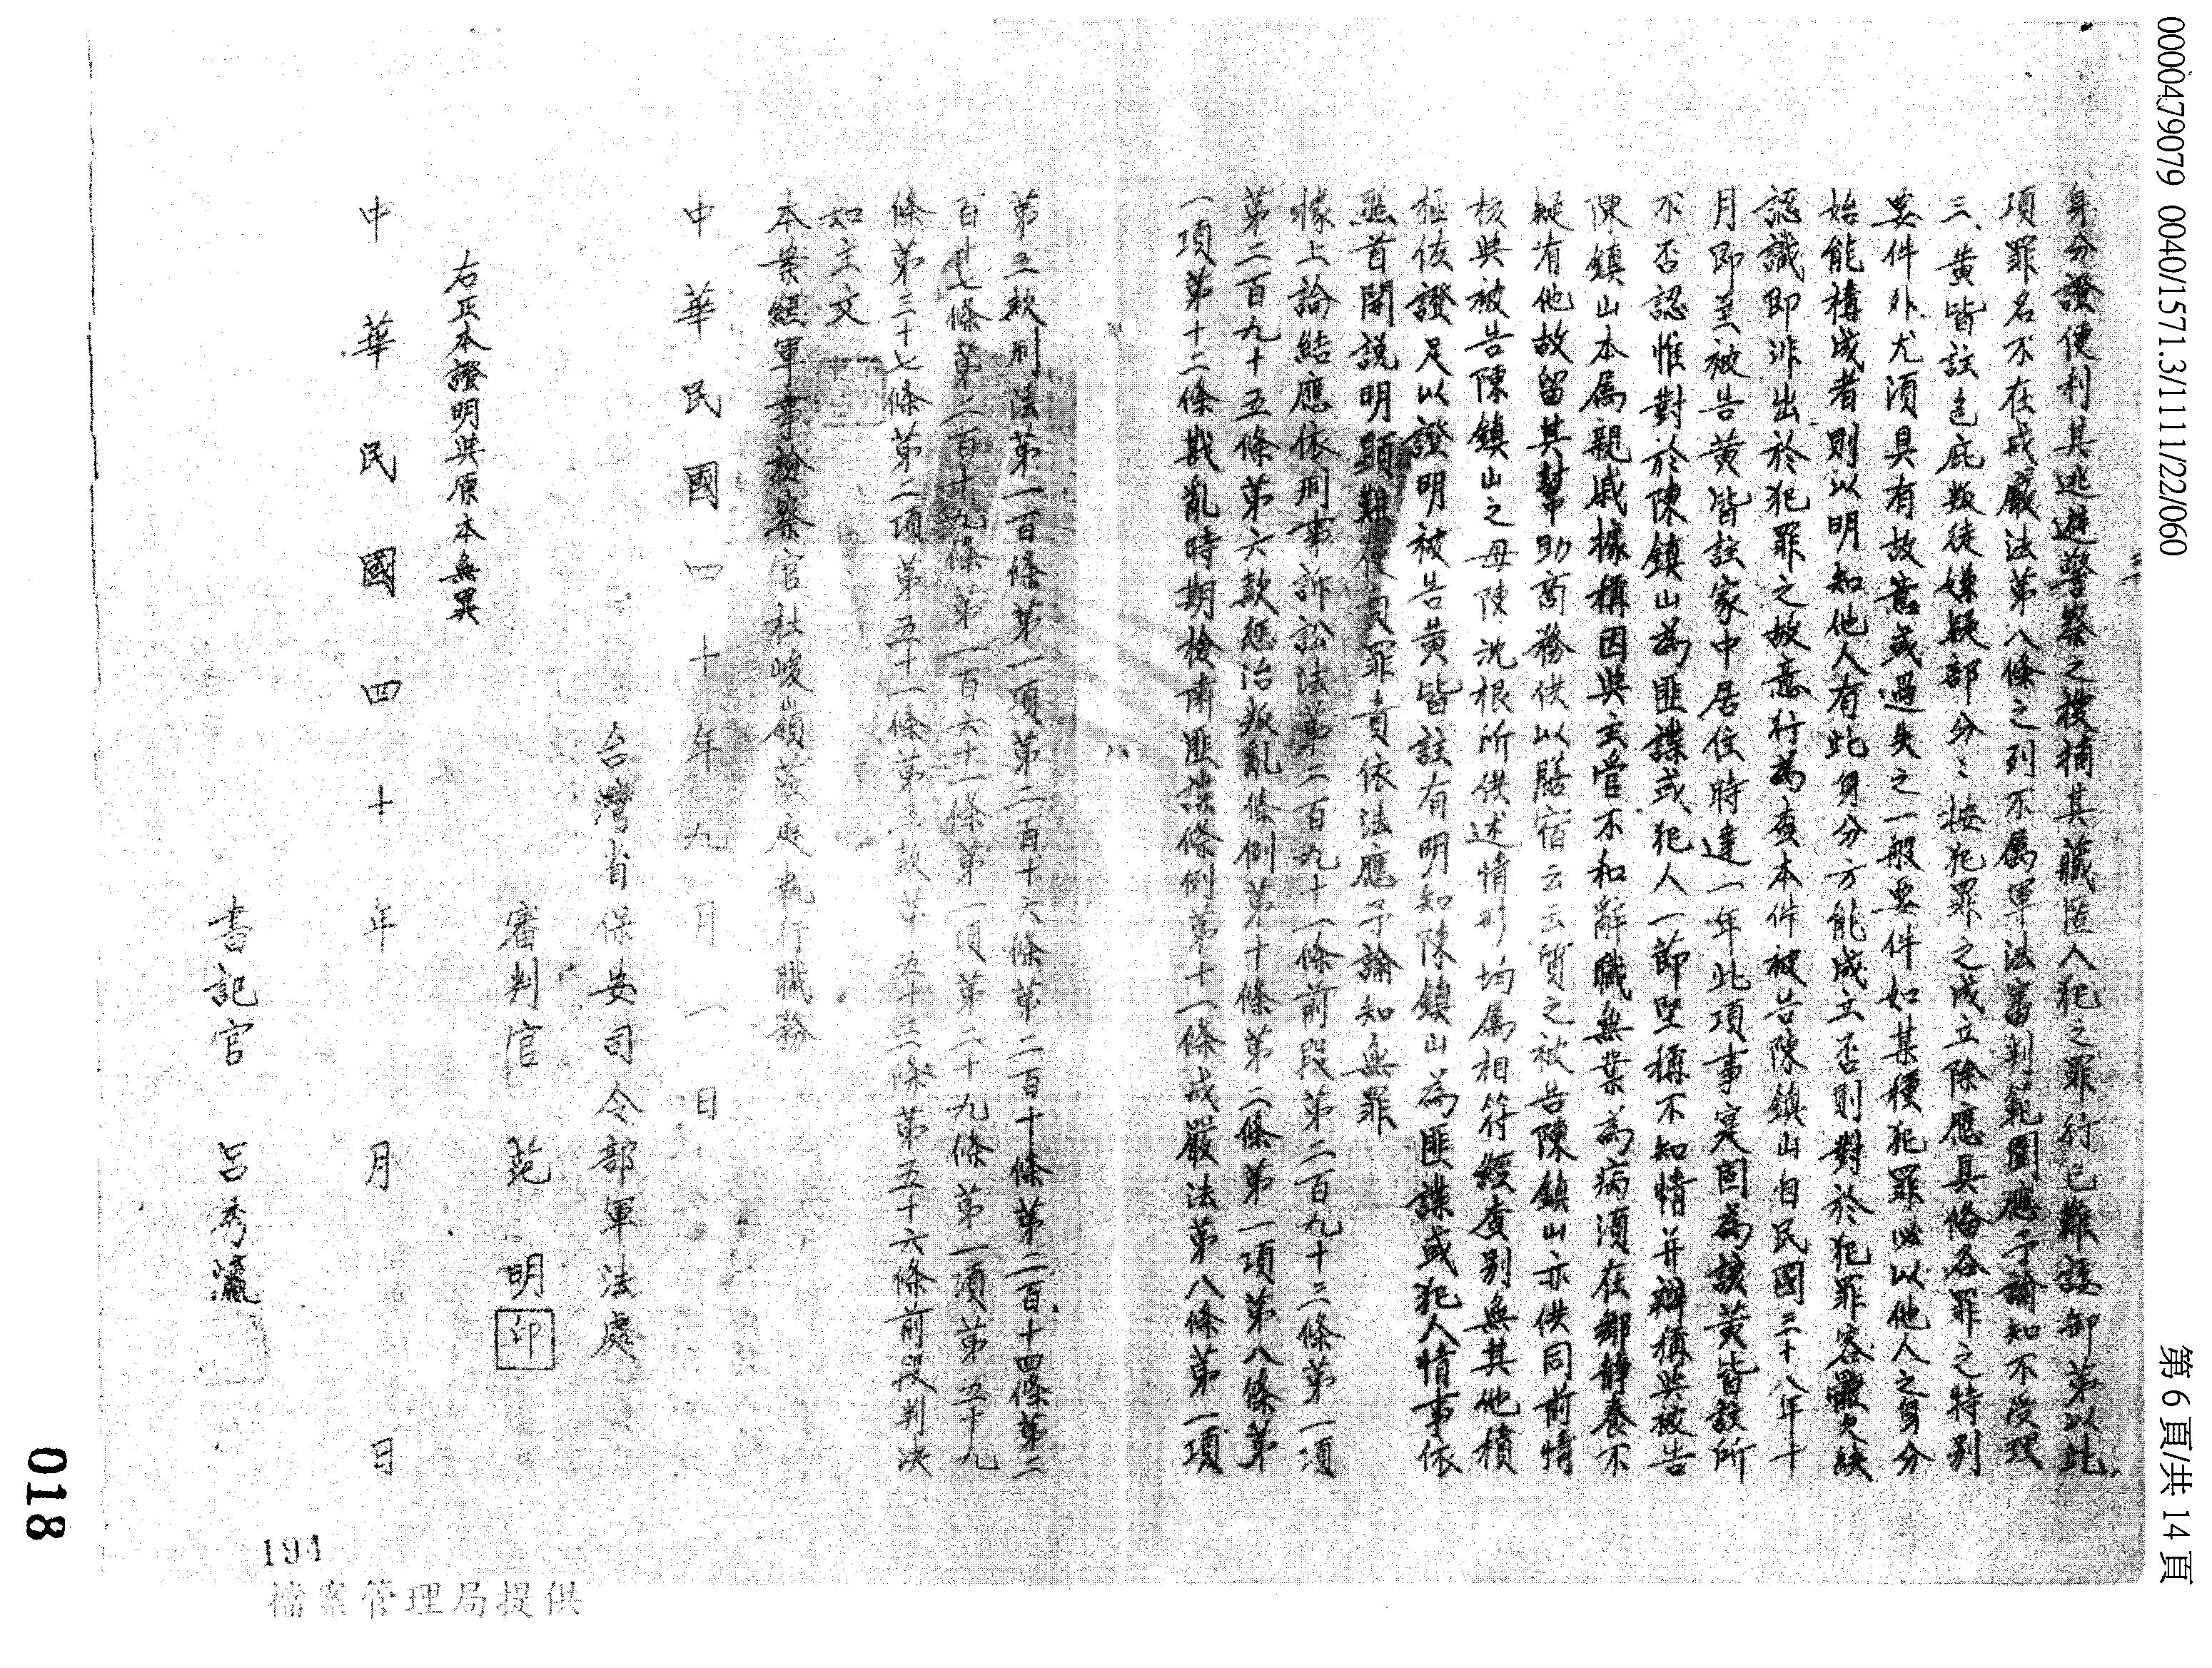 0000479079 0040/1571.3/1111/22/060
第 6 頁/共 14 頁
身分證便利其逃避警察之搜捕其藏匿人犯之罪行已難諉卸第以此
項罪名不在戒嚴法第八條之列不屬軍法審判範圍應予諭知不受理
三、黃皆註包庇叛徒嫌疑部分：按犯罪之成立除應具備各罪之特別
要件外尤須具有故意或過失之一般要件如某種犯罪必以他人之身分
始能構成者則以明知他人有此身分方能成立否則對於犯罪客體欠缺
認識即非出於犯罪之故意行為查本件被告陳鎮山自民國三十八年十
月即至被告黃皆註家中居住時達一年此項事實固為該黃皆註所
不否認惟對於陳鎮山為匪諜或犯人一節堅稱不知情并辯稱與被告
陳鎮山本屬親戚據稱因與主管不和辭職無業為病須在鄉靜養不
疑有他故留其幫助商務供以膳宿云云質之被告陳鎮山亦供同前情
核與被告陳鎮山之母陳沈根所供述情形均屬相符經查別無其他積
極佐證足以證明被告黃皆註有明知陳鎮山為匪諜或犯人情事依
照首開說明顯難負罪責依法應予諭知無罪
據上論結應依刑事訴訟法第二百九十一條前段第二百九十三條第一項
第二百九十五條第六款懲治叛亂條例第十條第二條第一項第八條第
一項第十二條戡亂時期檢肅匪諜條例第十一條戒嚴法第八條第一項
第三款刑法第一百條第一項第二百十六條第二百十條第二百十四條第二
百十七條第二百十九條第一百六十一條第一項第二十九條第一項第五十九
條第三十七條第二項第五十一條第款第五十三條第五十六條前段判決
如主文
本案經軍事檢察官杜峻嶺蒞庭執行職務
中華民國四十年九月一日
台灣省保安司令部軍法處
審判官 范明 印
右正本證明與原本無異
中華民國四十年 月 日
書記官 呂秀瀛
018
194
檔案管理局提供